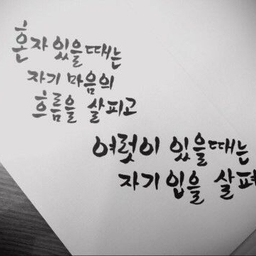 혼자 있을때는
자기 마음의
흐름을 살피고
여럿이 있을때는
자기 입을 살펴